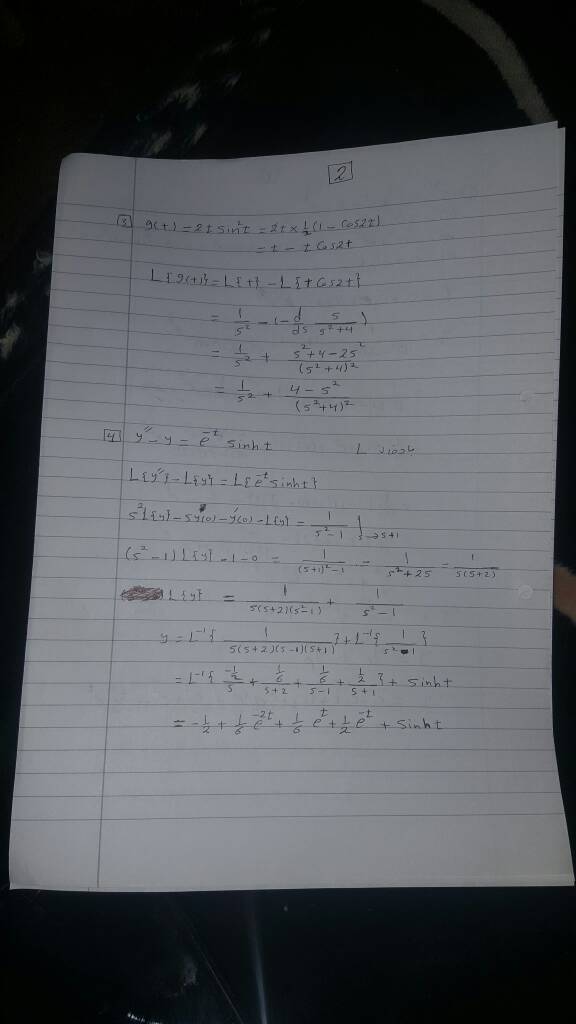 2
3 g(t) = 2t sin²t = 2t × 1/2 (1 - Cos2t)
= t - t Cos2t
L{g(t)} = L{t} - L{t Cos2t}
= 1/s² - (- d/ds s/(s²+4))
= 1/s² + (s²+4-2s²)/(s²+4)²
= 1/s² + (4-s²)/(s²+4)²
4 y'' - y = e^-t sinht L
L{y''} - L{y} = L{e^-t sinht}
s²L{y} - sy(0) - y'(0) - L{y} = 1/(s²-1) | s→s+1
(s²-1) L{y} - 1 - 0 = 1/((s+1)²-1) = 1/(s²+2s) = 1/(s(s+2))
L{y} = 1/(s(s+2)(s²-1)) + 1/(s²-1)
y = L^-1{1/(s(s+2)(s-1)(s+1))} + L^-1{1/(s²-1)}
= L^-1{(-1/2)/s + (1/6)/(s+2) + (1/6)/(s-1) + (1/2)/(s+1)} + sinht
= -1/2 + 1/6 e^-2t + 1/6 e^t + 1/2 e^-t + sinht